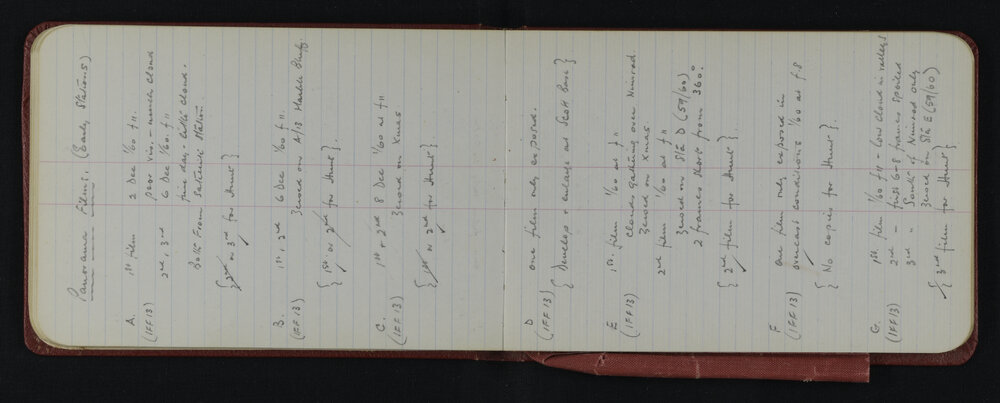 Panorama Films. (Early Stations)
A. 1st film 2 Dec 1/60 f 11.
(IFF13) poor vis. - much cloud
2nd, 3rd 6 Dec 1/60. f 11
fine day - little cloud.
Both from satellite station.
{2nd or 3rd for Hunt}
B. 1st, 2nd 6 Dec 1/60 f 11.
(IFF13) Zeroed on A/13 Marble Bluff.
{1st or 2nd for Hunt}.
C. 1st + 2nd 8 Dec 1/60 at f 11
(IFF13) Zeroed on Xmas
{1st or 2nd for Hunt}
D one film only exposed.
(IFF13)
{Develop + enlarge at Scott Base}
E 1st. film 1/60 at f 11
(IFF13) Clouds gathering over Nimrod.
Zeroed on Xmas.
2nd film 1/60 at f 11
Zeroed on Stn D (59/60)
2 frames short from 360°.
{2nd film for Hunt}.
F one film only exposed in
(IFF13) overcast conditions 1/60 at f 8
{No copies for Hunt}.
G. 1st film 1/60 f 11 - low cloud in valleys
(IFF13) 2nd - first 6-8 frames spoiled
3rd " South of Nimrod only
Zeroed on Stn E (59/60)
{3rd film for Hunt}